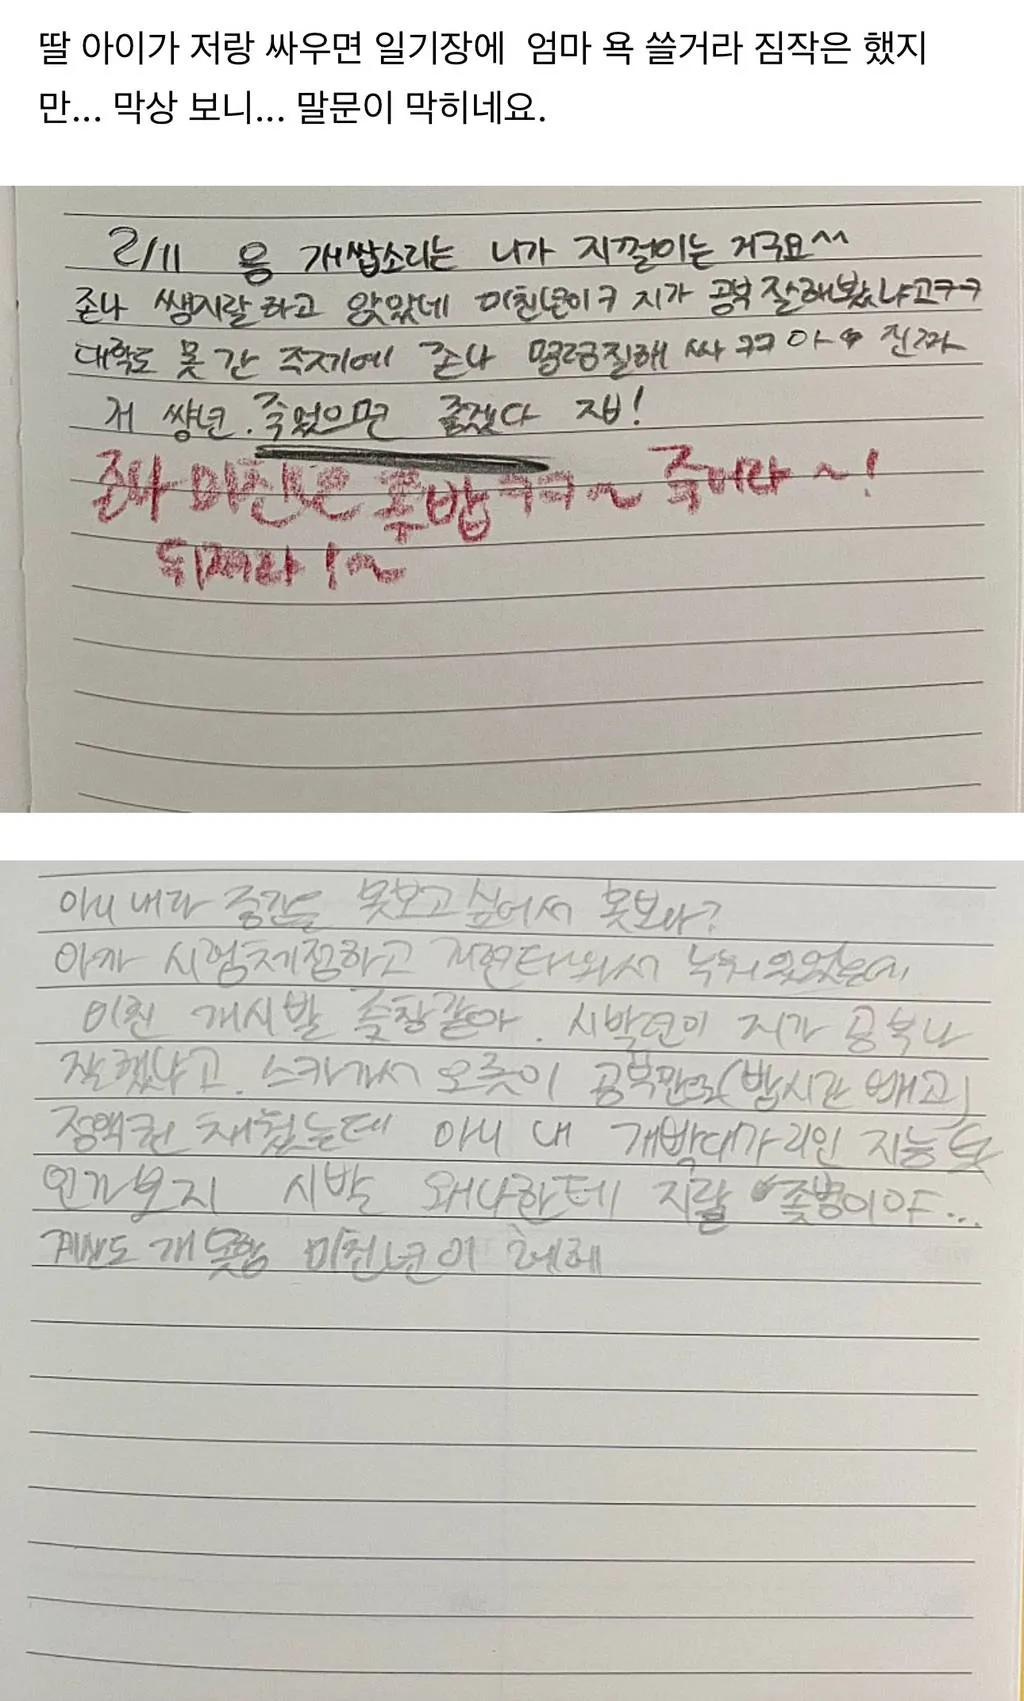 딸 아이가 저랑 싸우면 일기장에 엄마 욕 쓸거라 짐작은 했지
만... 막상 보니... 말문이 막히네요.
2/11 응 개쌉소리는 니가 지껄이는 거구요^^
존나 쌩지랄하고 앉았네 미친년이ㅋ 지가 공부 잘해봤냐고ㅋㅋ
대학도 못 간 주제에 존나 명령질해 싸 ㅋㅋ 아 진짜
저 썅년. 죽었으면 좋겠다 지발!
존나 미친년 좆밥 ㅋㅋ~ 죽어라~!
뒤져라!~
아니 내가 중간을 못보고 싶어서 못보나?
아까 시험채점하고 현타와서 누워있었는데
미친 개시발 좆창같아. 시박년이 지가 공부나
잘했냐고. 스카가서 오롯이 공부만으로(밥시간 빼고)
정액권 채웠는데 아니 내 개빡대가리인 지능 탓
인가보지 시발 왜 나한테 지랄 좆병이야...
계산도 개못함 미친년이 헤헤